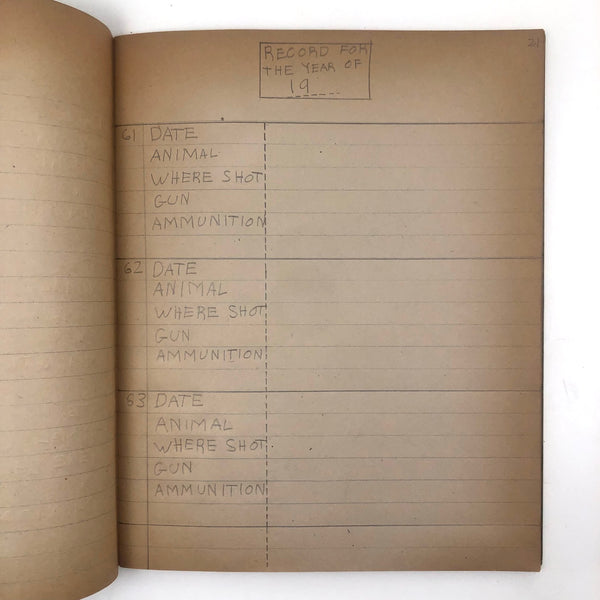 21
RECORD FOR
THE YEAR OF
19____
61 DATE
ANIMAL
WHERE SHOT
GUN
AMMUNITION
62 DATE
ANIMAL
WHERE SHOT
GUN
AMMUNITION
63 DATE
ANIMAL
WHERE SHOT
GUN
AMMUNITION